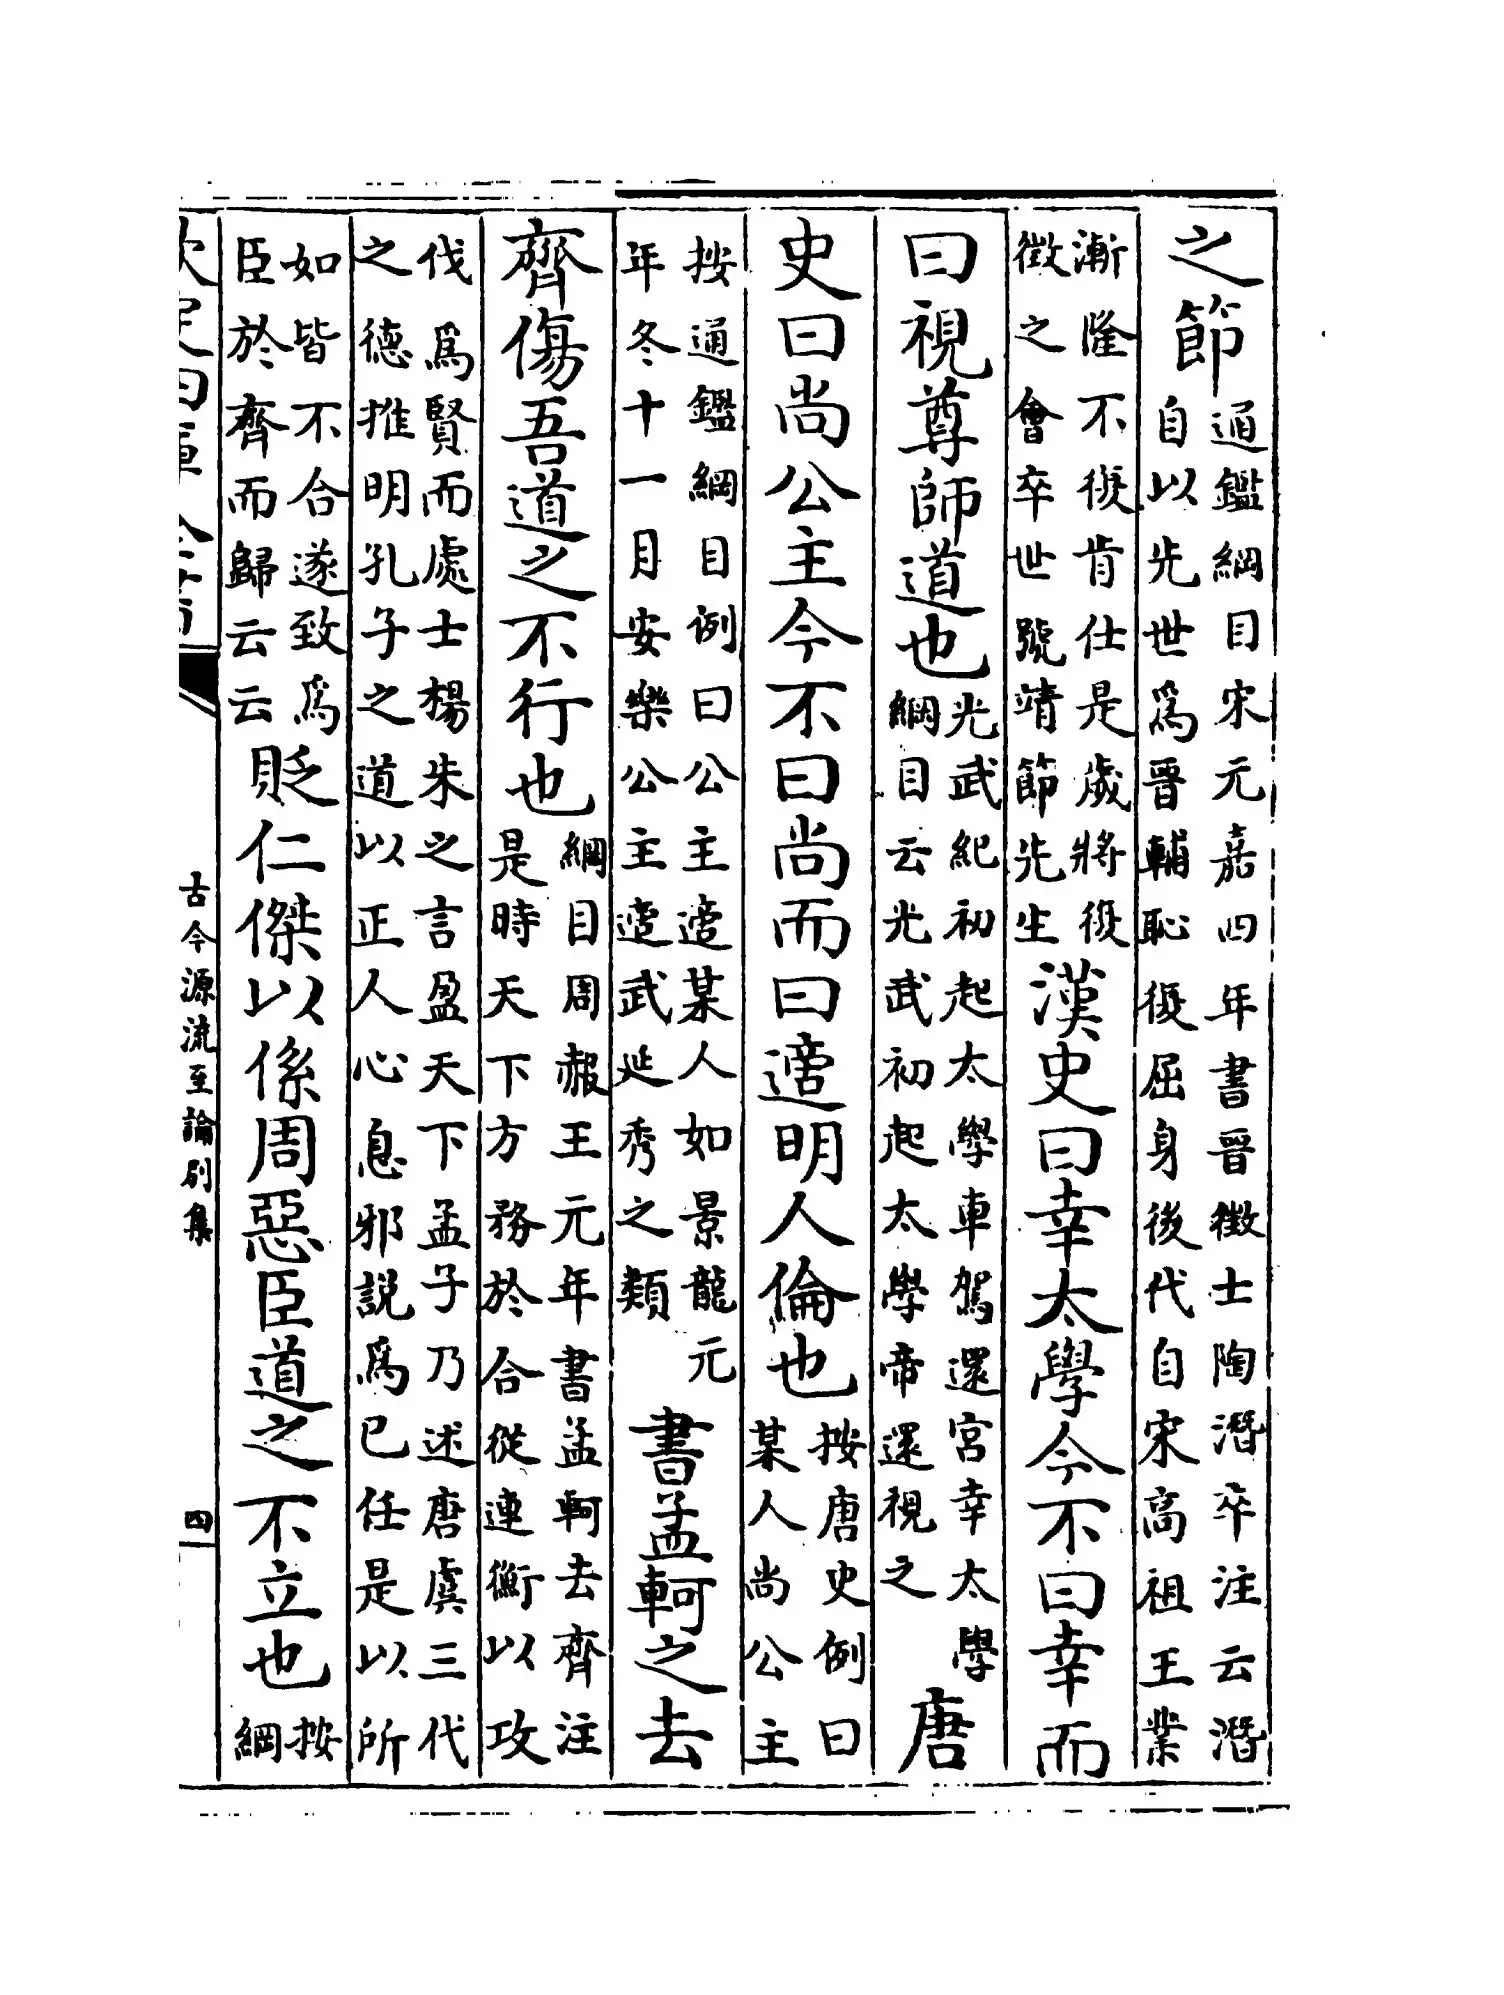 之節
通鑑綱目宋元嘉四年書晉徵士陶潛卒注云潛
自以先世爲晉輔恥復屈身後代自宋高祖王業
漸隆不復肯仕是歲將復
徵之會卒世號靖節先生
漢史曰幸太學今不曰幸而
曰視尊師道也
光武紀初起太學車駕還宮幸太學
綱目云光武初起太學帝還視之
唐
史曰尚公主今不曰尚而曰適明人倫也
按唐史例曰
某人尚公主
按通鑑綱目例曰公主適某人如景龍元
年冬十一月安樂公主適武延秀之類
書孟軻之去
齊傷吾道之不行也
綱目周赧王元年書孟軻去齊注
是時天下方務於合從連衡以攻
伐爲賢而處士楊朱之言盈天下孟子乃述唐虞三代
之德推明孔子之道以正人心息邪説爲已任是以所
如皆不合遂致爲
臣於齊而歸云云
貶仁傑以係周惡臣道之不立也
按
綱
欽定四庫全書
古今源流至論别集
四